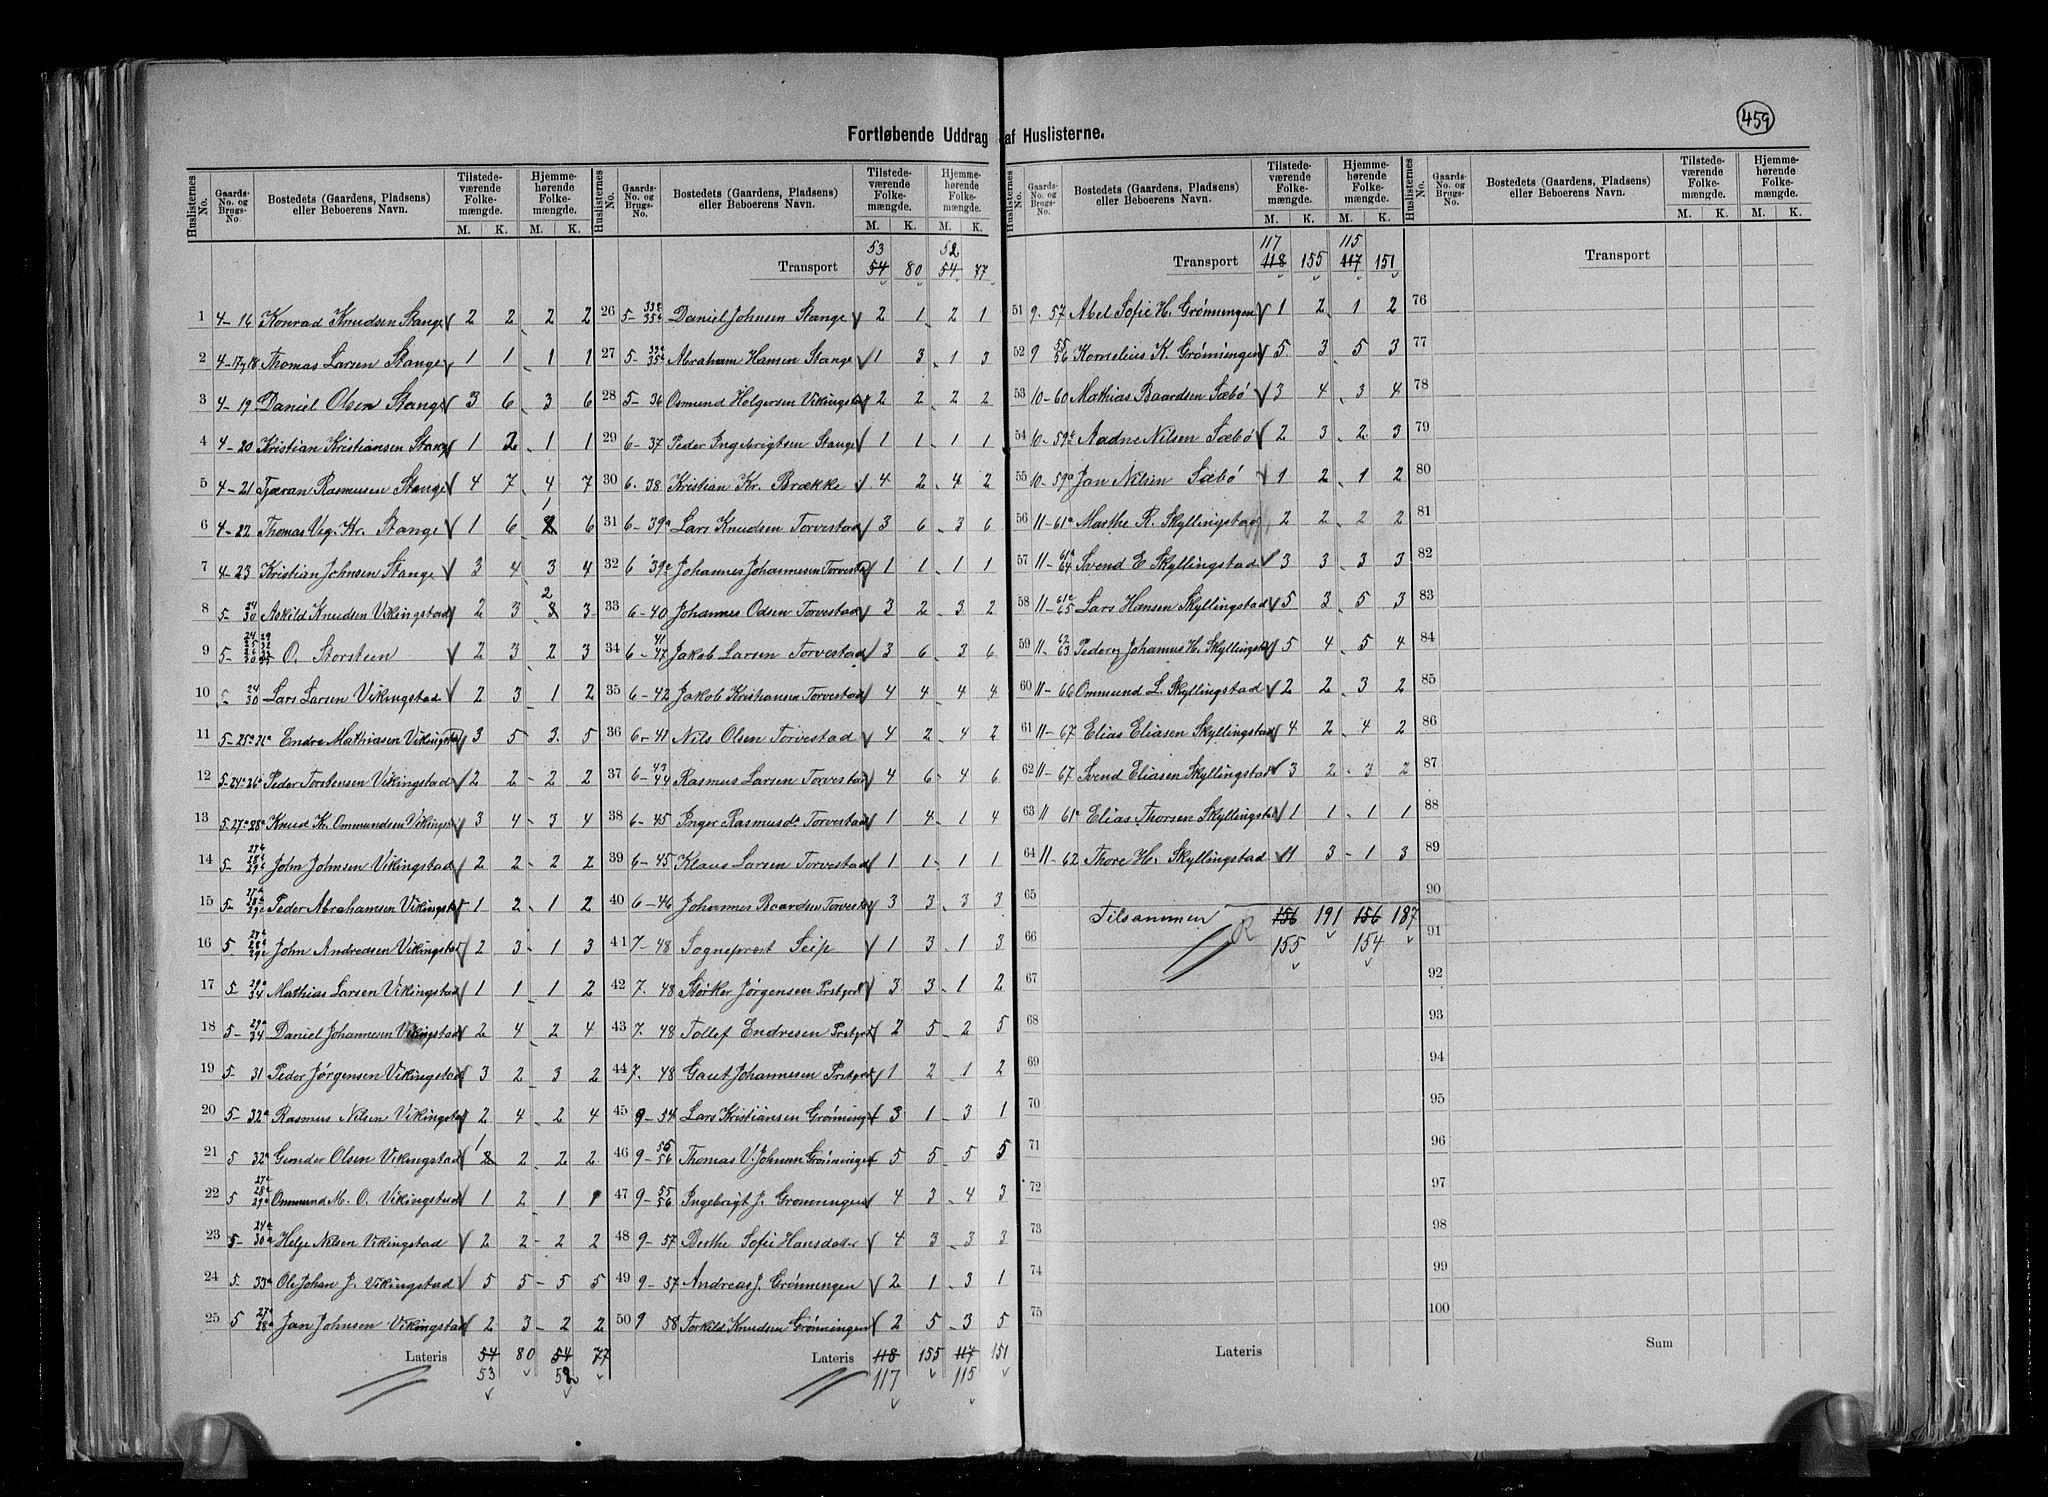 459
Fortløbende Uddrag af Huslisterne.
Huslisternes No. | Gaards-No. og Brugs-No. | Bostedets (Gaardens, Pladsens) eller Beboerens Navn. | Tilstedeværende Folkemængde. M. K. | Hjemmehørende Folkemængde. M. K.
1 4-16 Konrad Knudsen Stange 2 2 2 2
2 4-17,18 Thomas Larsen Stange 1 1 1 1
3 4-19 Daniel Olsen Stange 3 6 3 6
4 4-20 Kristian Kristiansen Stang 1 2 1 1
5 4-21 Tjæran Rasmusen Stange 4 7 4 7
6 4-22 Thomas Veg. Kr. Stange 1 6 1 6
7 4-23 Kristian Johnsen Stange 3 4 3 4
8 5- 24 30 Askild Knudsen Vikingstad 2 3 2 3
9 5- O. Storsteen 2 3 2 3
10 5- 24 30 Lars Larsen Vikingstad 2 3 1 2
11 5-25a 31a Endre Mathiasen Vikingstad 3 5 3 5
12 5-24a 26a Peder Torstensen Vikingstad 2 2 2 2
13 5-27a 28a Knud Kr. Ommundsen Vikings 3 4 3 4
14 5- John Johnsen Vikingstad 2 2 2 2
15 5- Peder Abrahamsen Vikingsta 1 2 1 2
16 5. John Andreasen Vikingstad 2 3 1 3
17 5. 29a 34 Mathias Larsen Vikingstad 1 1 1 2
18 5- 29a 34 Daniel Johannesen Vikingstad 2 4 2 4
19 5- 31 Peder Jørgensen Vikingstad 3 2 3 2
20 5- 32a Rasmus Nilsen Vikingstad 2 4 2 4
21 5 32a Gunder Olsen Vikingstad 1 2 2 2
22 5 Ommund M. O. Vikingstad 1 2 1 1
23 5- 24a 30a Helge Nilsen Vikingstad 2 2 2 2
24 5- 33a Ole Johan J. Vikingstad 5 5 5 5
25 5 27a 28a Jan Johnsen Vikingstad 2 3 2 2
Lateris 54 80 54 77
53 52
Huslisternes No. | Gaards-No. og Brugs-No. | Bostedets (Gaardens, Pladsens) eller Beboerens Navn. | Tilstedeværende Folkemængde. M. K. | Hjemmehørende Folkemængde. M. K.
53 52
Transport 54 80 54 77
26 5- Daniel Johnsen Stange 2 1 2 1
27 5- Abraham Hansen Stange 1 3 1 3
28 5-36 Osmund Holgersen Vikingstad 2 2 2 2
29 6-37 Peder Ingebrigtsen Stange 1 1 1 1
30 6.38 Kristian Kr. Brække 4 2 4 2
31 6-39a Lars Knudsen Torvestad 3 6 3 6
32 6 39c Johannes Johannesen Torvesta 1 1 1 1
33 6-40 Johannes Odsen Torvestad 3 2 3 2
34 6- 41 47 Jakob Larsen Torvestad 3 6 3 6
35 6-42 Jakob Kristiansen Torvestad 4 4 4 4
36 6-41 Nils Olsen Torvestad 4 2 4 2
37 6- 43 44 Rasmus Larsen Torvestad 4 6 4 6
38 6-45 Inger Rasmusd. Torvestad 1 4 1 4
39 6-45 Klaus Larsen Torvestad 1 1 1 1
40 6-46 Johannes Baardsen Torvestad 3 3 3 3
41 7-48 Sogneprost Seip 1 3 1 3
42 7.48 Størker Jørgensen Prstgrd 3 3 1 2
43 7.48 Tollef Endresen Prstgrd 2 5 2 5
44 7.48 Gaut Johannesen Prstgrd 1 2 1 2
45 9-54 Lars Kristiansen Grønning 3 1 3 1
46 9- 55 56 Thomas V. Johnsen Grønningen 5 5 5 5
47 9- 55 56 Ingebrigt J. Grønningen 4 3 4 3
48 9-57 Berthe Sofie Hansdatter 4 3 3 3
49 9-57 Andreas J. Grønningen 2 1 3 1
50 9 58 Torkild Knudsen Grønningen 2 5 3 5
Lateris 118 155 117 151
117 115
Huslisternes No. | Gaards-No. og Brugs-No. | Bostedets (Gaardens, Pladsens) eller Beboerens Navn. | Tilstedeværende Folkemængde. M. K. | Hjemmehørende Folkemængde. M. K.
117 115
Transport 118 155 117 151
51 9.57 Abel Sofie H. Grønningen 1 2 1 2
52 9 55 56 Kornelius K. Grønningen 5 3 5 3
53 10-60 Mathias Baardsen Sæbø 3 4 3 4
54 10-59c Aadne Nilsen Sæbø 2 3 2 3
55 10-59a Jan Nilsen Sæbø 1 2 1 2
56 11-61a Marthe R. Skyllingstad 2 2 2 2
57 11- 61a 64 Svend E Skyllingstad 3 3 3 3
58 11- 61c 65 Lars Hansen Skyllingstad 5 3 5 3
59 11- 62 63 Peder og Johannes H. Skyllingstad 5 4 5 4
60 11-66 Ommund L. Skyllingstad 2 2 3 2
61 11-67 Elias Eliasen Skyllingstad 4 2 4 2
62 11-67 Svend Eliasen Skyllingstad 3 2 3 2
63 11 61a Elias Thorsen Skyllingsta 1 1 1 1
64 11-62 Thore H. Skyllingstad 1 3 1 3
65
Tilsammen 156 191 156 187
66 R 155 154
67
68
69
70
71
72
73
74
75
Lateris
Huslisternes No. | Gaards-No. og Brugs-No. | Bostedets (Gaardens, Pladsens) eller Beboerens Navn. | Tilstedeværende Folkemængde. M. K. | Hjemmehørende Folkemængde. M. K.
Transport
76
77
78
79
80
81
82
83
84
85
86
87
88
89
90
91
92
93
94
95
96
97
98
99
100
Sum